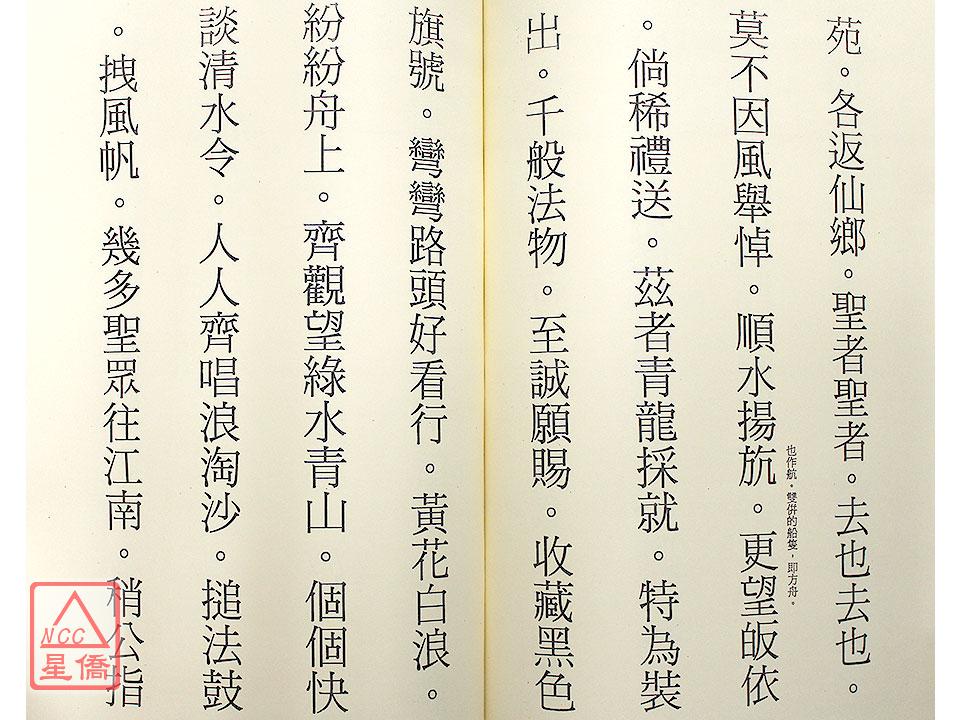 苑。各返仙鄉。聖者聖者。去也去也。
莫不因風舉悼。順水揚斻。更望皈依
也作航。雙併的船隻，即方舟。
。倘稀禮送。茲者青龍採就。特為裝
出。千般法物。至誠願賜。收藏黑色
旗號。彎彎路頭好看行。黃花白浪。
紛紛舟上。齊觀望綠水青山。個個快
談清水令。人人齊唱浪淘沙。搥法鼓
。拽風帆。幾多聖眾往江南。稍公指
NCC
星僑